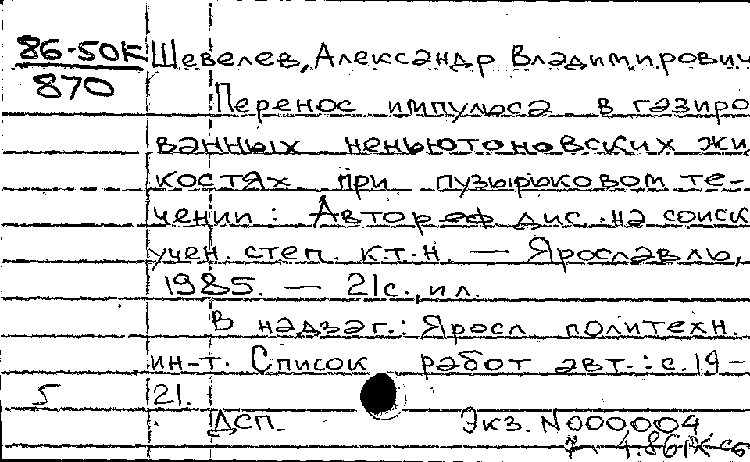 86-50К Шевелев, Александр Владимирович
870
Перенос импульса в газиро
ванных неньютоновских жи
костях при пузырьковом те-
чении : Автореф дис. на соиск
учен. степ. к.т.н. — Ярославль,
1985. — 21с., ил.
В надзаг.: Яросл. политехн.
ин-т. Список работ авт.: с. 19-
5 21.
ДСП. Экз. N000004
4.86